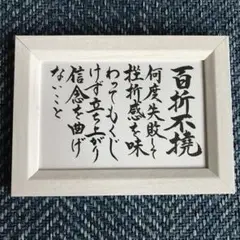 百折不撓
何度失敗して
挫折感を味
わってもくじ
けず立ち上がり
信念を曲げ
ないこと